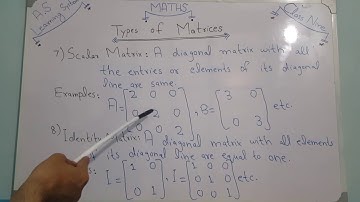 AS
Learning System
MATHS
Class Nine
Types of Matrices
7) Scalar Matrix: A diagonal matrix with all
the entries or elements of its diagonal
line are same.
Examples: A = [2 0 0
0 2 0
0 0 2], B = [3 0
0 3] etc.
8) Identity Matrix: A diagonal matrix with all elements
its diagonal line are equal to one.
I = [1 0
0 1], I = [1 0 0
0 1 0
0 0 1] etc.